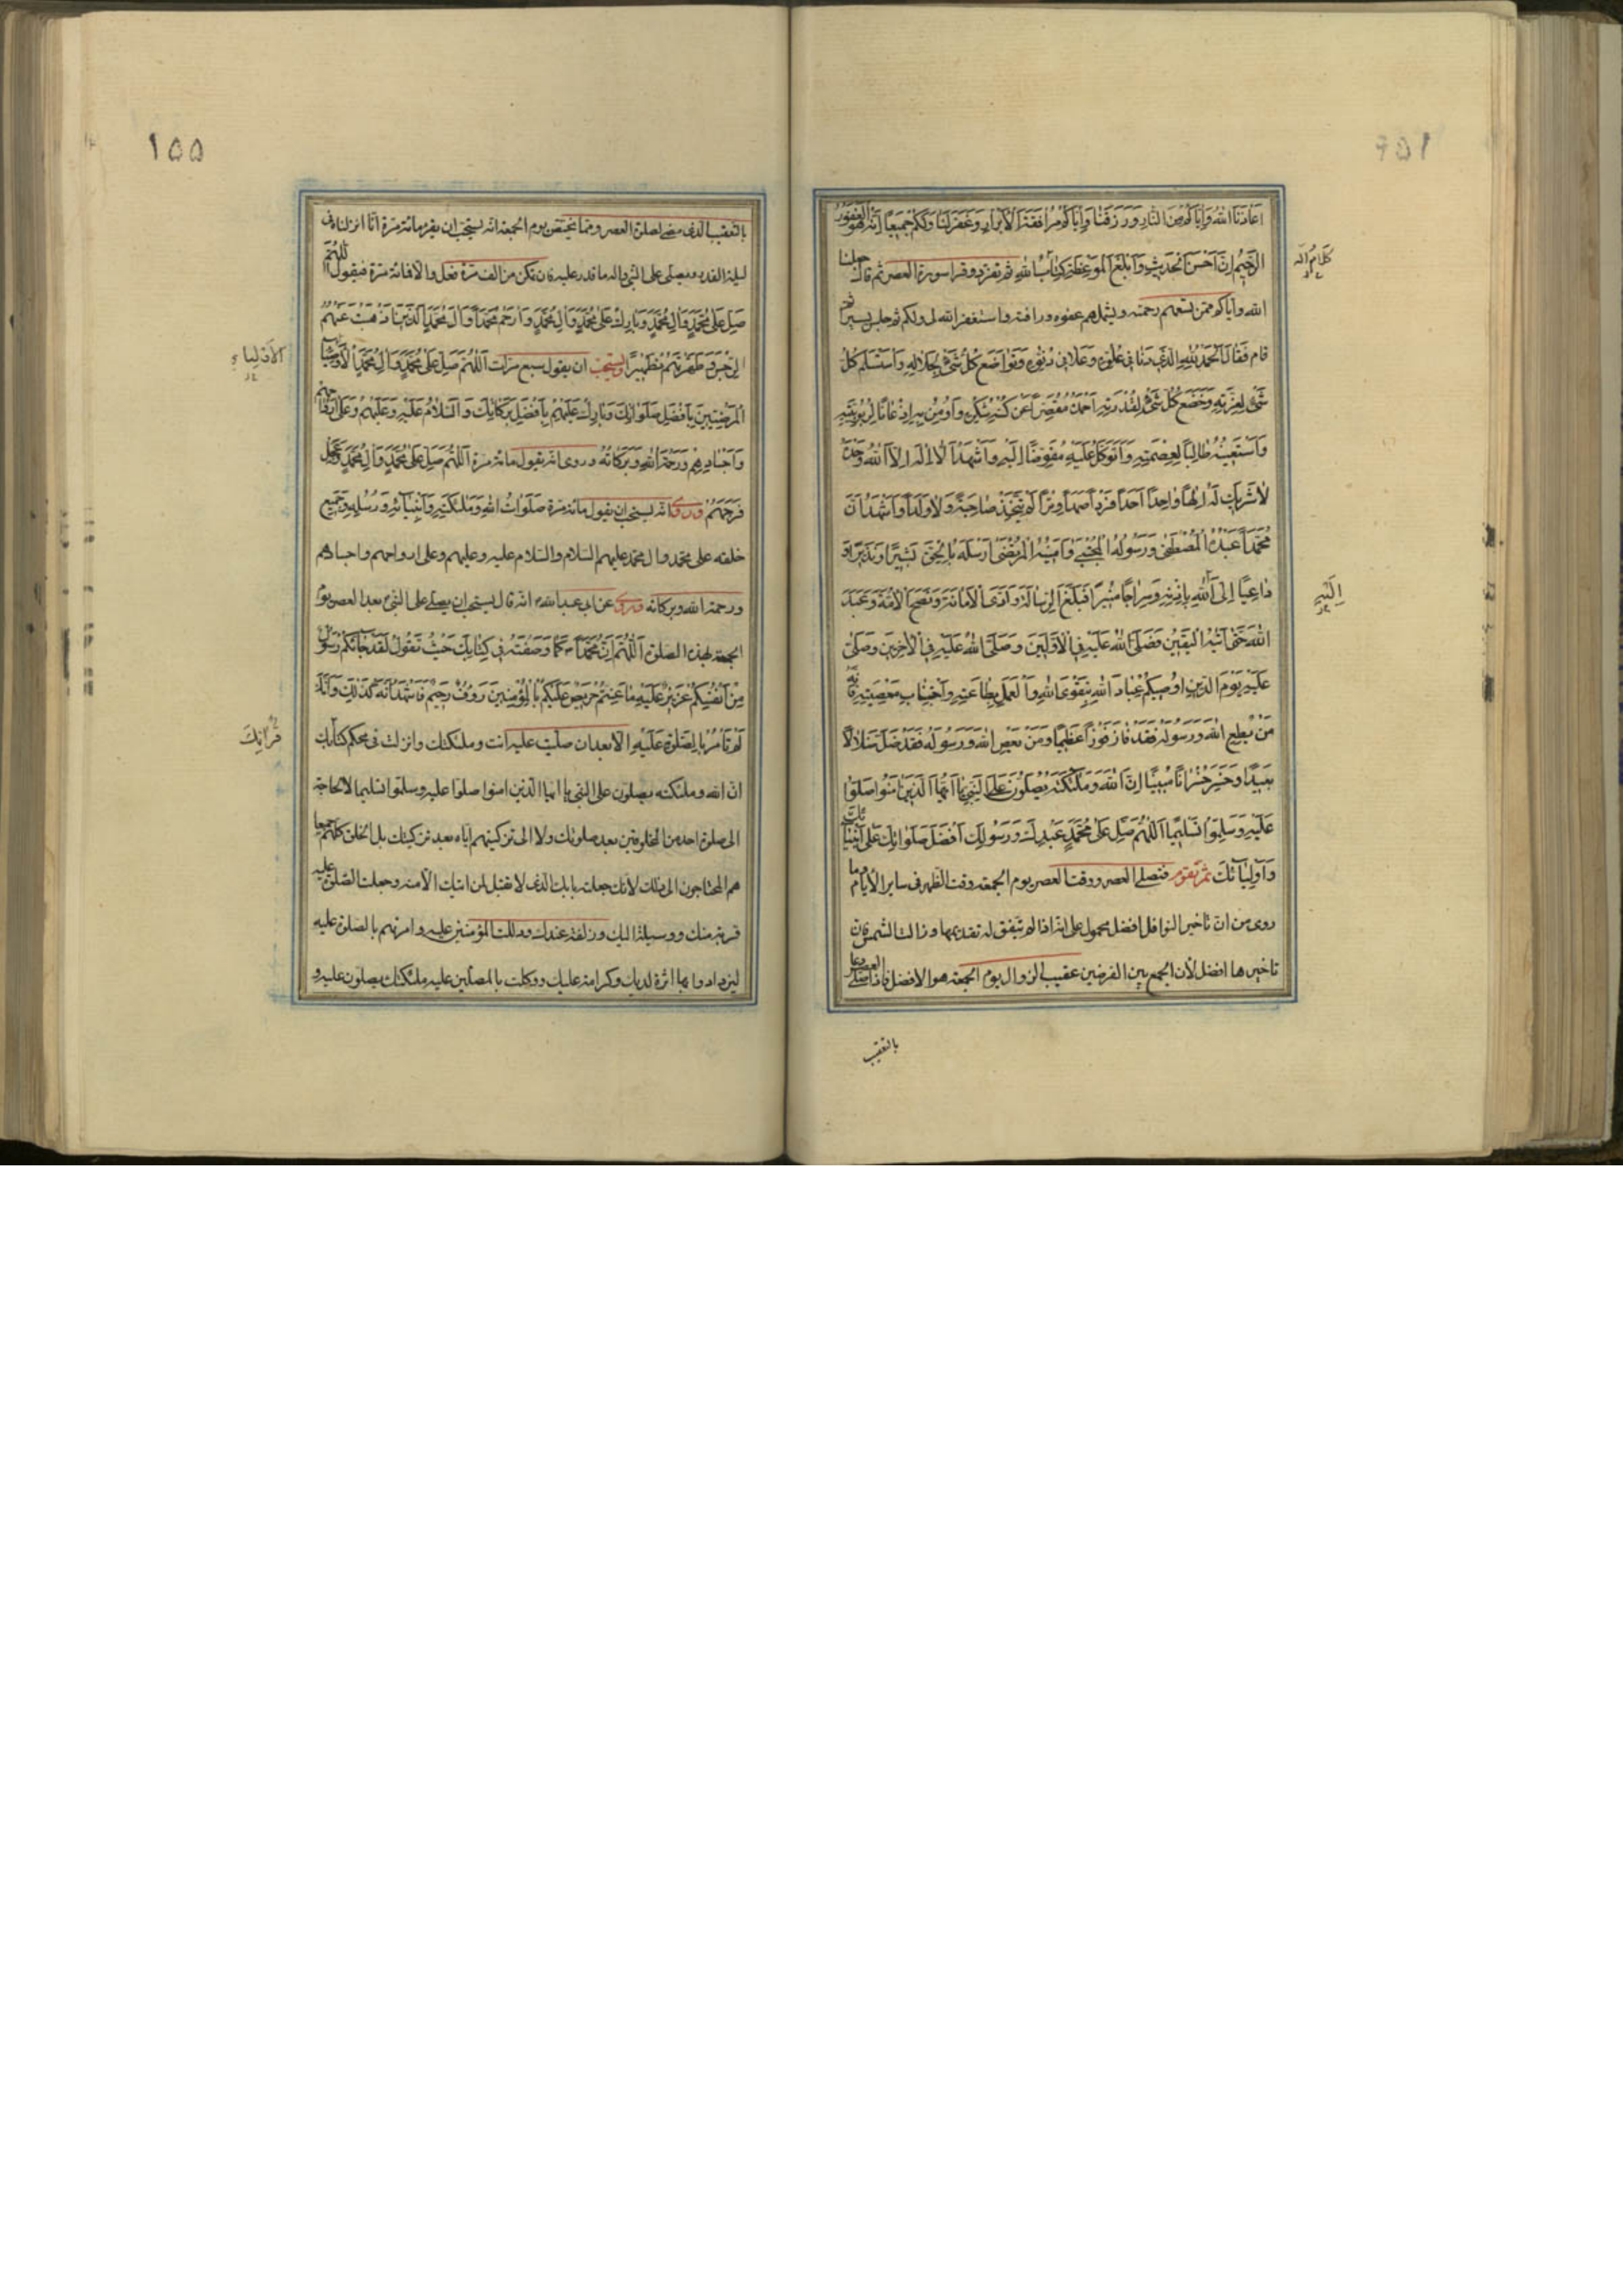 اَعاذَنَا اللهُ وَاِيّاكُمْ مِنَ النّارِ وَرَزَقَنا وَاِيّاكُمْ مُرافَقَةَ الْاَبْرارِ وَغَفَرَ لَنا وَلَكُمْ جَميعًا اِنَّهُ هُوَ الْغَفُورُ
الرَّحيمُ اِنَّ اَحْسَنَ الْحَديثِ وَاَبْلَغَ الْمَوْعِظَةِ كِتابُ اللهِ ثم تعوذ وقرا سورة العصر ثم قال جعلنا
كَلامُ اللهِ
الله واياكم ممن تسعهم رحمته ويشملهم عفوه ورافته واستغفر الله لى ولكم ثم جلس يسيرا ثم
قام فَقالَ اَلْحَمْدُ لِلّهِ الَّذي دَنا في عُلُوِّهِ وَعَلا في دُنُوِّهِ وَتَواضَعَ كُلُّ شَيْءٍ لِجَلالِهِ وَاسْتَسْلَمَ كُلُّ
شَيْءٍ لِعِزَّتِهِ وَخَضَعَ كُلُّ شَيْءٍ لِقُدْرَتِهِ اَحْمَدُهُ مُقَصِّرًا عَنْ كُنْهِ شُكْرِهِ وَاُومِنُ بِهِ اِذْعانًا لِرُبُوبِيَّتِهِ
وَاَسْتَعينُهُ طالِبًا لِعِصْمَتِهِ وَاَتَوَكَّلُ عَلَيْهِ مُفَوِّضًا اِلَيْهِ وَاَشْهَدُ اَنْ لا اِلهَ اِلاَّ اللهُ وَحْدَهُ
لا شَريكَ لَهُ اِلهًا واحِدًا اَحَدًا فَرْدًا صَمَدًا وِتْرًا لَمْ يَتَّخِذْ صاحِبَةً وَلا وَلَدًا وَاَشْهَدُ اَنَّ
مُحَمَّدًا عَبْدُهُ الْمُصْطَفى وَرَسُولُهُ الْمُجْتَبى وَاَمينُهُ الْمُرْتَضى اَرْسَلَهُ بِالْحَقِّ بَشيرًا وَنَذيرًا وَ
داعِيًا اِلَى اللهِ بِاِذْنِهِ وَسِراجًا مُنيرًا فَبَلَّغَ الرِّسالَةَ وَاَدَّى الْاَمانَةَ وَنَصَحَ الْاُمَّةَ وَعَبَدَ
اِلَيْهِ
اللهَ حَتّى اَتيهُ الْيَقينُ فَصَلَّى اللهُ عَلَيْهِ فِي الْاَوَّلينَ وَصَلَّى اللهُ عَلَيْهِ فِي الْاخِرينَ وَصَلّى
عَلَيْهِ يَوْمَ الدّينِ اُوصيكُمْ عِبادَ اللهِ بِتَقْوَى اللهِ وَالْعَمَلِ بِطاعَتِهِ وَاجْتِنابِ مَعْصِيَتِهِ فَاِنَّهُ
مَنْ يُطِعِ اللهَ وَرَسُولَهُ فَقَدْ فازَ فَوْزًا عَظيمًا وَمَنْ يَعْصِ اللهَ وَرَسُولَهُ فَقَدْ ضَلَّ ضَلالًا
بَعيدًا وَخَسِرَ خُسْرانًا مُبينًا اِنَّ اللهَ وَمَلئِكَتَهُ يُصَلُّونَ عَلَى النَّبِيِّ يا اَيُّهَا الَّذينَ امَنُوا صَلُّوا
عَلَيْهِ وَسَلِّمُوا تَسْليمًا اَللّهُمَّ صَلِّ عَلى مُحَمَّدٍ عَبْدِكَ وَرَسُولِكَ اَفْضَلَ صَلَواتِكَ عَلى اَنْبِيائِكَ
وَاَوْلِيائِكَ ثم تقوم فتصلى العصر ووقت العصر يوم الجمعة وقت الظهر فى ساير الايام وما
روى من ان تاخير النوافل افضل محمول على انه اذا لم يتفق له تقديمها وزالت الشمس فان
تاخيرها افضل لان الجمع بين الفرضين عقيب الزوال يوم الجمعة هو الافضل فاذا صلى العصر دعا
بالتعقيب
١٥٥
بالتعقيب الذى مضى لصلوة العصر ومما يختص يوم الجمعة انه يستحب ان يقرء مائة مرة انا انزلناه فى
ليلة القدر ويصلى على النبى واله ما قدر عليه فان تمكن من الف مرة فعل والا فمائة مرة فيقول اللّهُمَّ
صَلِّ عَلى مُحَمَّدٍ وَالِ مُحَمَّدٍ وَبارِكْ عَلى مُحَمَّدٍ وَالِ مُحَمَّدٍ وَارْحَمْ مُحَمَّدًا وَالَ مُحَمَّدٍ الَّذينَ اَذْهَبْتَ عَنْهُمُ
الرِّجْسَ وَطَهَّرْتَهُمْ تَطْهيرًا ويستحب ان يقول سبع مرات اَللّهُمَّ صَلِّ عَلى مُحَمَّدٍ وَالِ مُحَمَّدٍ الْاَوْصِياءِ
الاَوْلِياءِ
الْمَرْضِيّينَ بِاَفْضَلِ صَلَواتِكَ وَبارِكْ عَلَيْهِمْ بِاَفْضَلِ بَرَكاتِكَ وَالسَّلامُ عَلَيْهِ وَعَلَيْهِمْ وَعَلى اَرْواحِهِمْ
وَاَجْسادِهِمْ وَرَحْمَةُ اللهِ وَبَرَكاتُهُ وروى انه يقول مائة مرة اَللّهُمَّ صَلِّ عَلى مُحَمَّدٍ وَالِ مُحَمَّدٍ وَعَجِّلْ
فَرَجَهُمْ وروى انه يستحب ان يقول مائة مرة صَلَواتُ اللهِ وَمَلئِكَتِهِ وَاَنْبِيائِهِ وَرُسُلِهِ وَجَميعِ
خلقه على محمد وال محمد عليهم السلام والسلام عليه وعليهم وعلى ارواحهم واجسادهم
ورحمة الله وبركاته وروى عن ابى عبدالله انه قال يستحب ان يصلى على النبى بعد العصر يوم
الجمعة بهذه الصلوة اَللّهُمَّ اِنَّ مُحَمَّدًا كَما وَصَفْتَهُ في كِتابِكَ حَيْثُ تَقُولُ لَقَدْ جاءَكُمْ رَسُولٌ
مِنْ اَنْفُسِكُمْ عَزيزٌ عَلَيْهِ ما عَنِتُّمْ حَريصٌ عَلَيْكُمْ بِالْمُؤْمِنينَ رَؤُفٌ رَحيمٌ فَاَشْهَدُ اَنَّهُ كَذلِكَ وَاَنَّكَ
لَمْ تَأْمُرْ بِالصَّلوةِ عَلَيْهِ الا بعد ان صليت عليه انت وملئكتك وانزلت فى محكم كتابك
قُرْانِكَ
ان الله وملئكته يصلون على النبى يا ايها الذين امنوا صلوا عليه وسلموا تسليما لا لحاجة
الى صلوة احد من المخلوقين بعد صلوتك ولا الى تزكيتهم اياه بعد تزكيتك بل الخلق كلهم جميعا
هم المحتاجون الى ذلك لانك جعلته بابك الذى لا تقبل لمن اتيك الا منه وجعلت الصلوة عليه
قربة منك ووسيلة اليك وزلفة عندك ودللت المؤمنين عليه وامرتهم بالصلوة عليه
ليزدادوا بها اثرة لديك وكرامة عليك ووكلت بالمصلين عليه ملئكتك يصلون عليه و